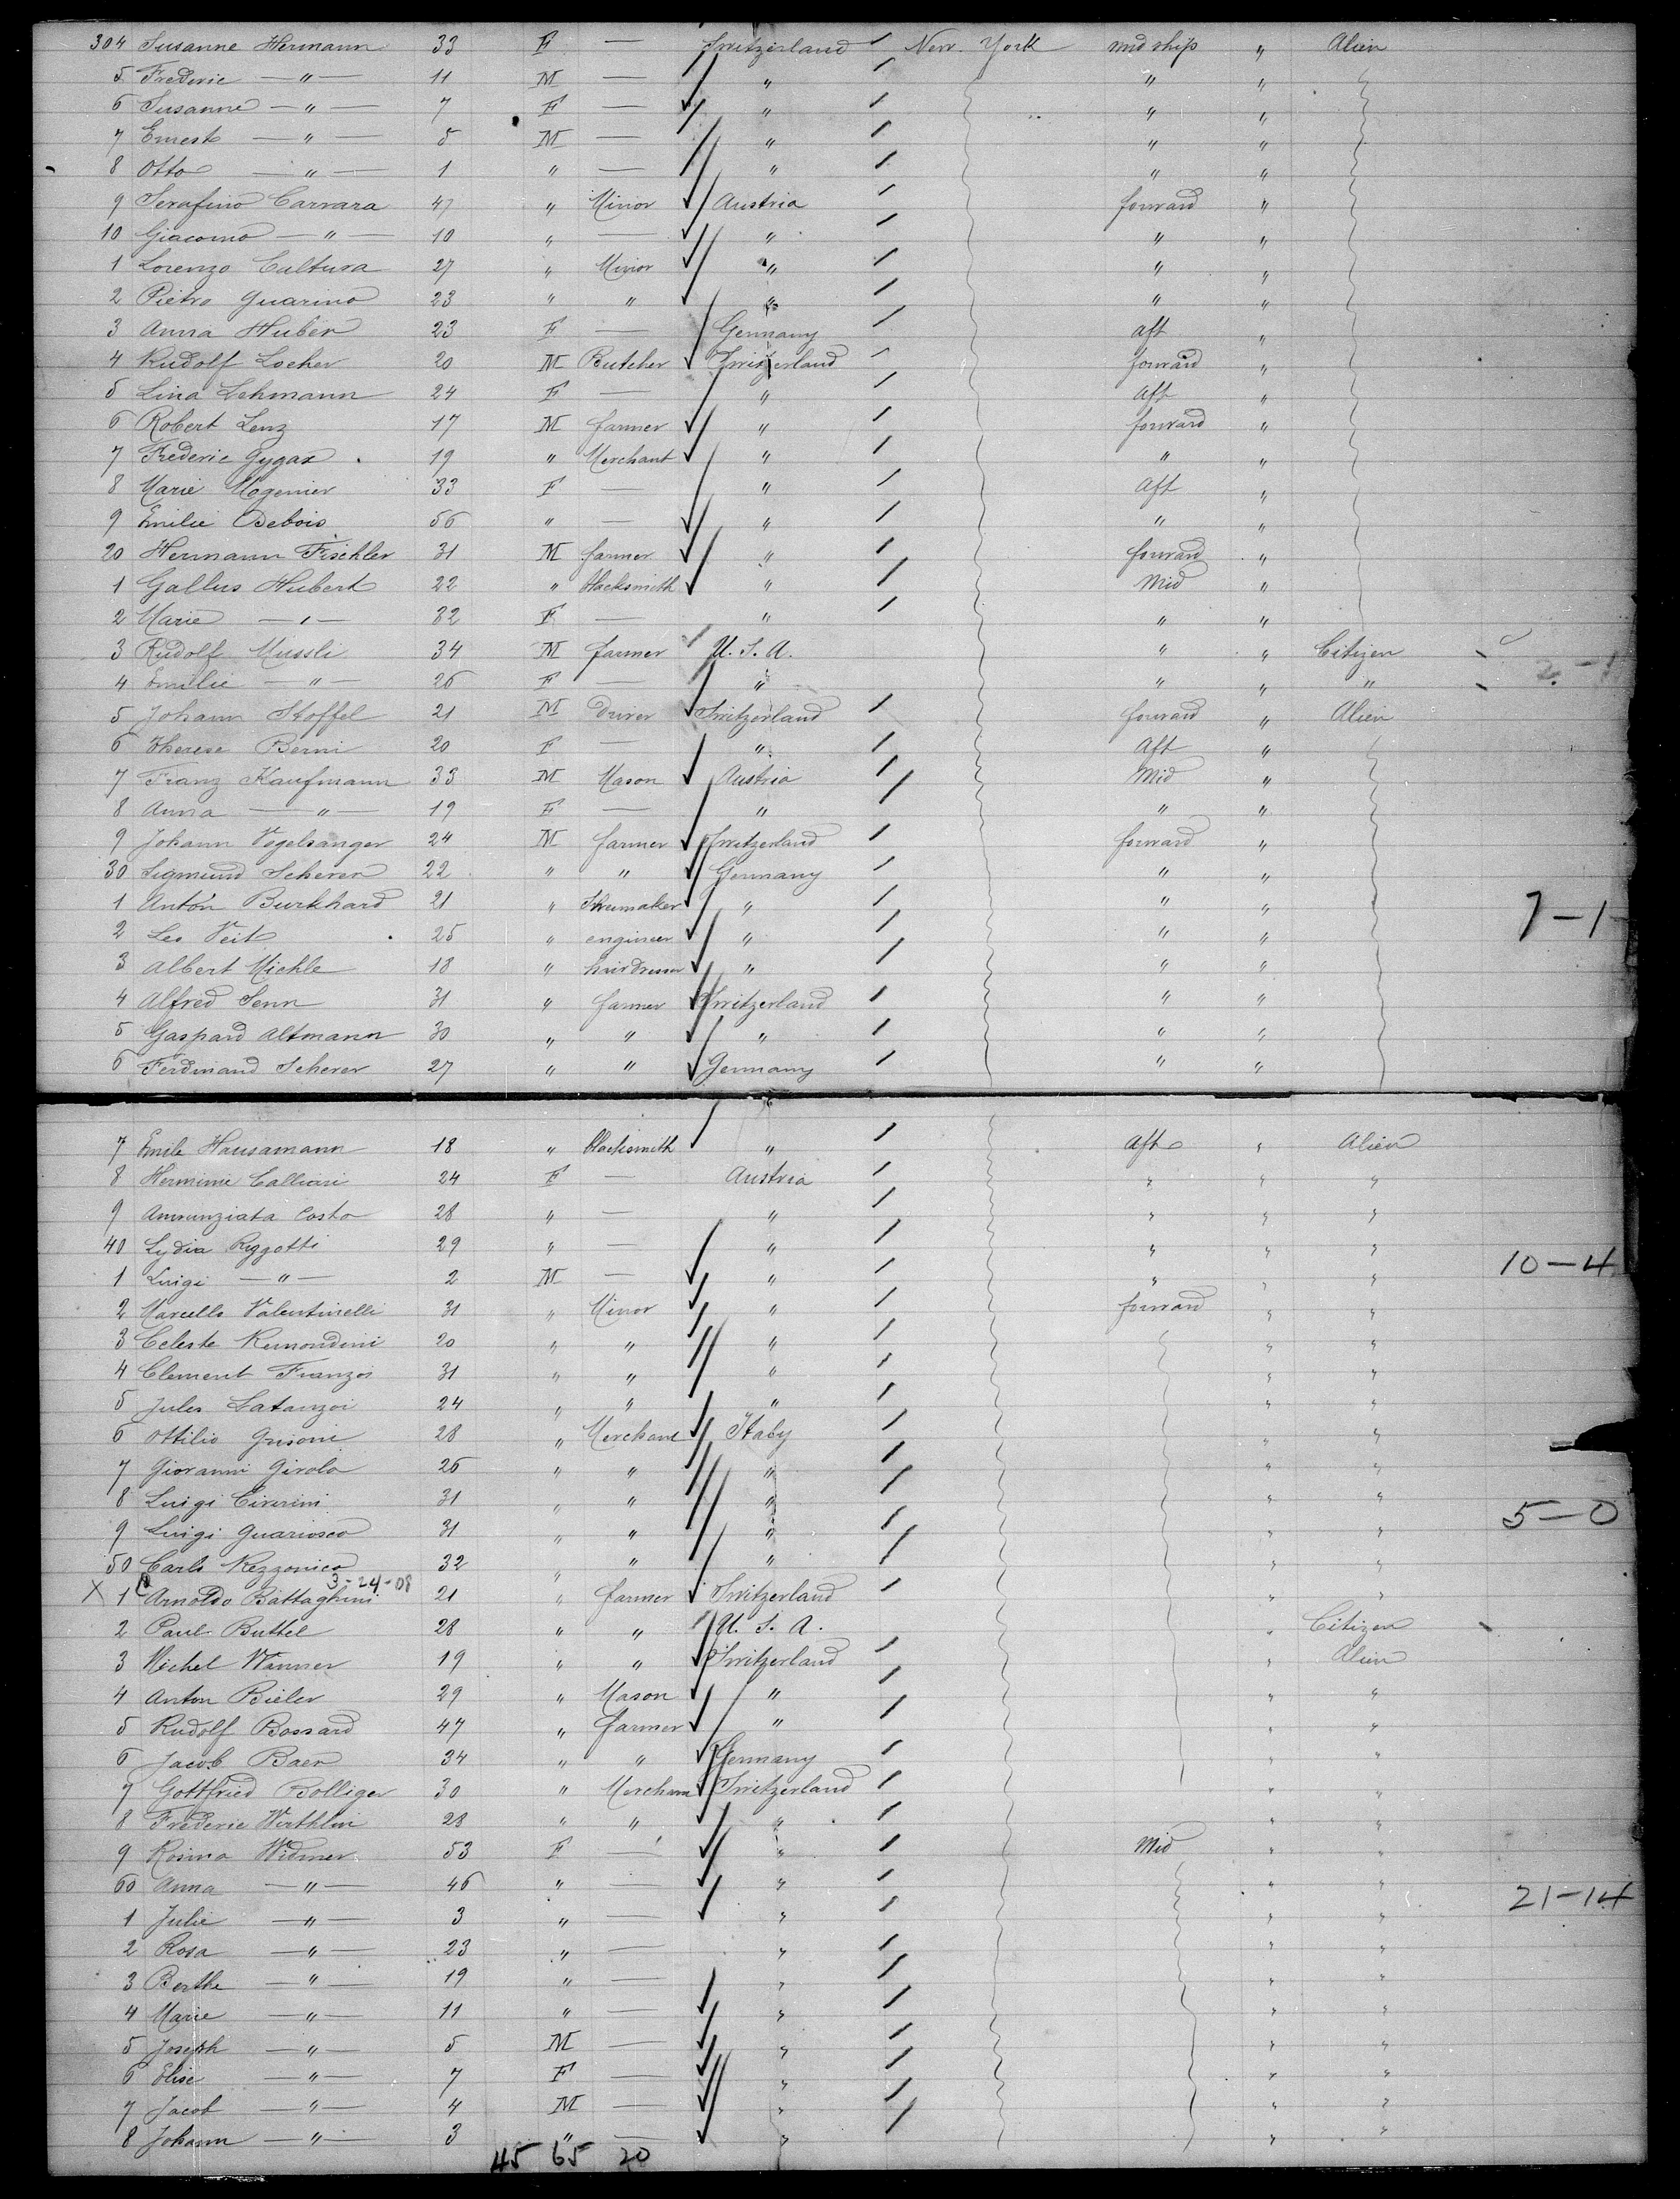 304 Susanne Hermann 33 F — Switzerland New York midship " Alien
5 Frederic —"— 11 M — " " "
6 Susanne —"— 7 F — " " "
7 Ernest —"— 5 M — " " "
8 Otto —"— 1 " — " " "
9 Serafino Carrara 47 " Minor Austria forward "
10 Giacomo —"— 10 " — " " "
1 Lorenzo Cultura 27 " Minor " " "
2 Pietro Guarino 23 " " " " "
3 Anna Huber 23 F — Germany aft "
4 Rudolf Locher 20 M Butcher Switzerland forward "
5 Lina Lehmann 24 F — " Aft "
6 Robert Lenz 17 M farmer " forward "
7 Frederic Gygax 19 " Merchant " " "
8 Marie Mogenier 33 F — " Aft "
9 Emilie Debois 56 " — " " "
20 Hermann Fischler 31 M farmer " forward "
1 Gallus Hubert 22 " blacksmith " Mid "
2 Marie —"— 32 F — " " "
3 Rudolf Mussli 34 M farmer U.S.A. " " Citizen
4 Emilie —"— 26 F — " " " "
5 Johann Stoffel 21 M driver Switzerland forward " Alien
6 Therese Berni 20 F — " Aft "
7 Franz Kaufmann 33 M Mason Austria Mid "
8 Anna —"— 19 F — " " "
9 Johann Vogelsanger 24 M farmer Switzerland forward "
30 Sigmund Scherer 22 " " Germany " "
1 Anton Burkhard 21 " Shumaker " " " 7-1
2 Leo Veit 25 " engineer " " "
3 Albert Michle 18 " hairdresser " " "
4 Alfred Senn 31 " farmer Switzerland " "
5 Gaspard Altmann 30 " " " " "
6 Ferdinand Scherer 27 " " Germany " "
7 Emile Hausamann 18 " blacksmith " Aft " Alien
8 Hermine Calliari 24 F — Austria " " "
9 Annunziata Costa 28 " — " " " "
40 Lydia Rizzotti 29 " — " " " " 10-4
1 Luigi —"— 2 M — " " " "
2 Marcello Valentinelli 31 " Minor " forward " "
3 Celeste Remondini 20 " " " " "
4 Clement Franzoi 31 " " " " "
5 Jules Satanzoi 24 " " " " "
6 Ottilio Grisoni 28 " Merchant Italy " "
7 Giovanni Girola 26 " " " " "
8 Luigi Civirini 31 " " " " " 5-0
9 Luigi Guarisco 31 " " " " "
50 Carlo Rezzonico 32 " " " " "
3-24-08
X 1 Arnoldo Battaghini 21 " farmer Switzerland " "
2 Paul Buttel 28 " " U.S.A. " Citizen
3 Michel Wanner 19 " " Switzerland " Alien
4 Anton Bieler 29 " Mason " " "
5 Rudolf Bossard 47 " farmer " " "
6 Jacob Baer 34 " " Germany " "
7 Gottfried Bolliger 30 " Merchant Switzerland " "
8 Frederic Wirthlin 28 " " " " "
9 Rosina Widmer 53 F — " Mid " "
60 Anna —"— 46 " — " " " 21-14
1 Julie —"— 3 " — " " "
2 Rosa —"— 23 " — " " "
3 Berthe —"— 19 " — " " "
4 Marie —"— 11 " — " " "
5 Joseph —"— 5 M — " " "
6 Elise —"— 7 F — " " "
7 Jacob —"— 4 M — " " "
8 Johann —"— 3 " — " " "
45 65 20